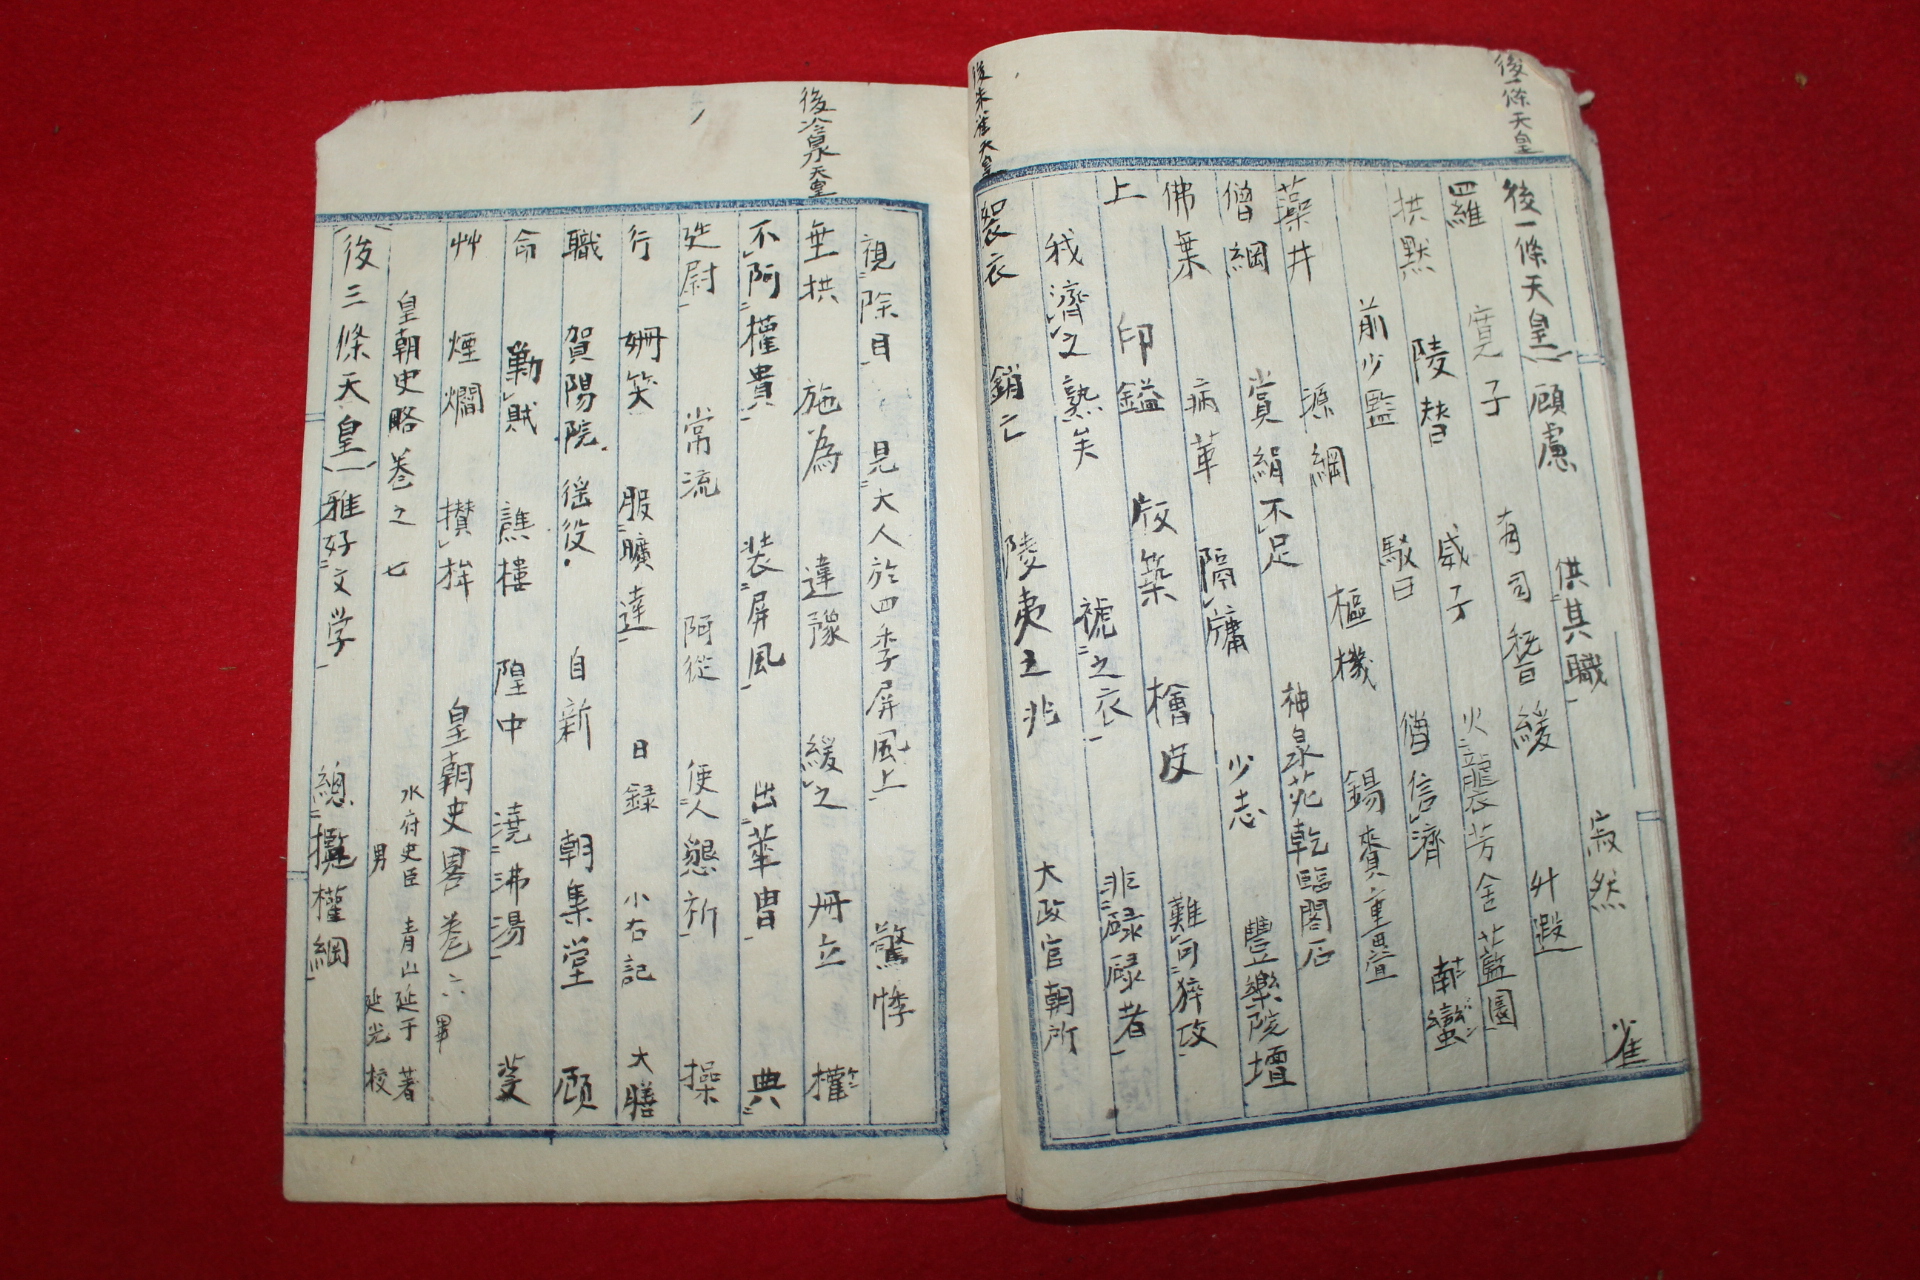 後一條天皇
後一條天皇 顧慮 供其職 寂然 雀
羅 寛子 有司 緩 升遐
拱默 陵替 威子 火襲芳舍藍園 南蠻
前少監 駁曰 僧信濟
藻井 綱 樞機 錫賚重疊
僧綱 賞絹不足 神泉苑乾臨閣石
佛葉 病革 隔牖 少志 豐樂院壇
上 印鎰 版築 檜皮 難可猝攻
我濟之熟矣 褫之衣 非碌碌者
袈衣 銷亡 陵夷之兆 大政官朝所
後朱雀天皇
後冷泉天皇
視除目 見大人於四季屏風上 驚悸
垂拱 施為 違豫 緩之 冊立 權
不阿權貴 裝屏風 出華曹 典
廷尉 常流 阿從 使人懇祈 操
行 姍笑 服曠達 日録 小右記 大膳
職 賀陽院 徭役 自新 朝集堂 顧
命 勦賊 譙樓 隍中 澆沸湯 芟
艸 煙爛 攢 皇朝史畧卷六畢
皇朝史略巻之七 水府史臣 青山延于 著
男 延光 校
後三條天皇 雅好文学 總攬權綱